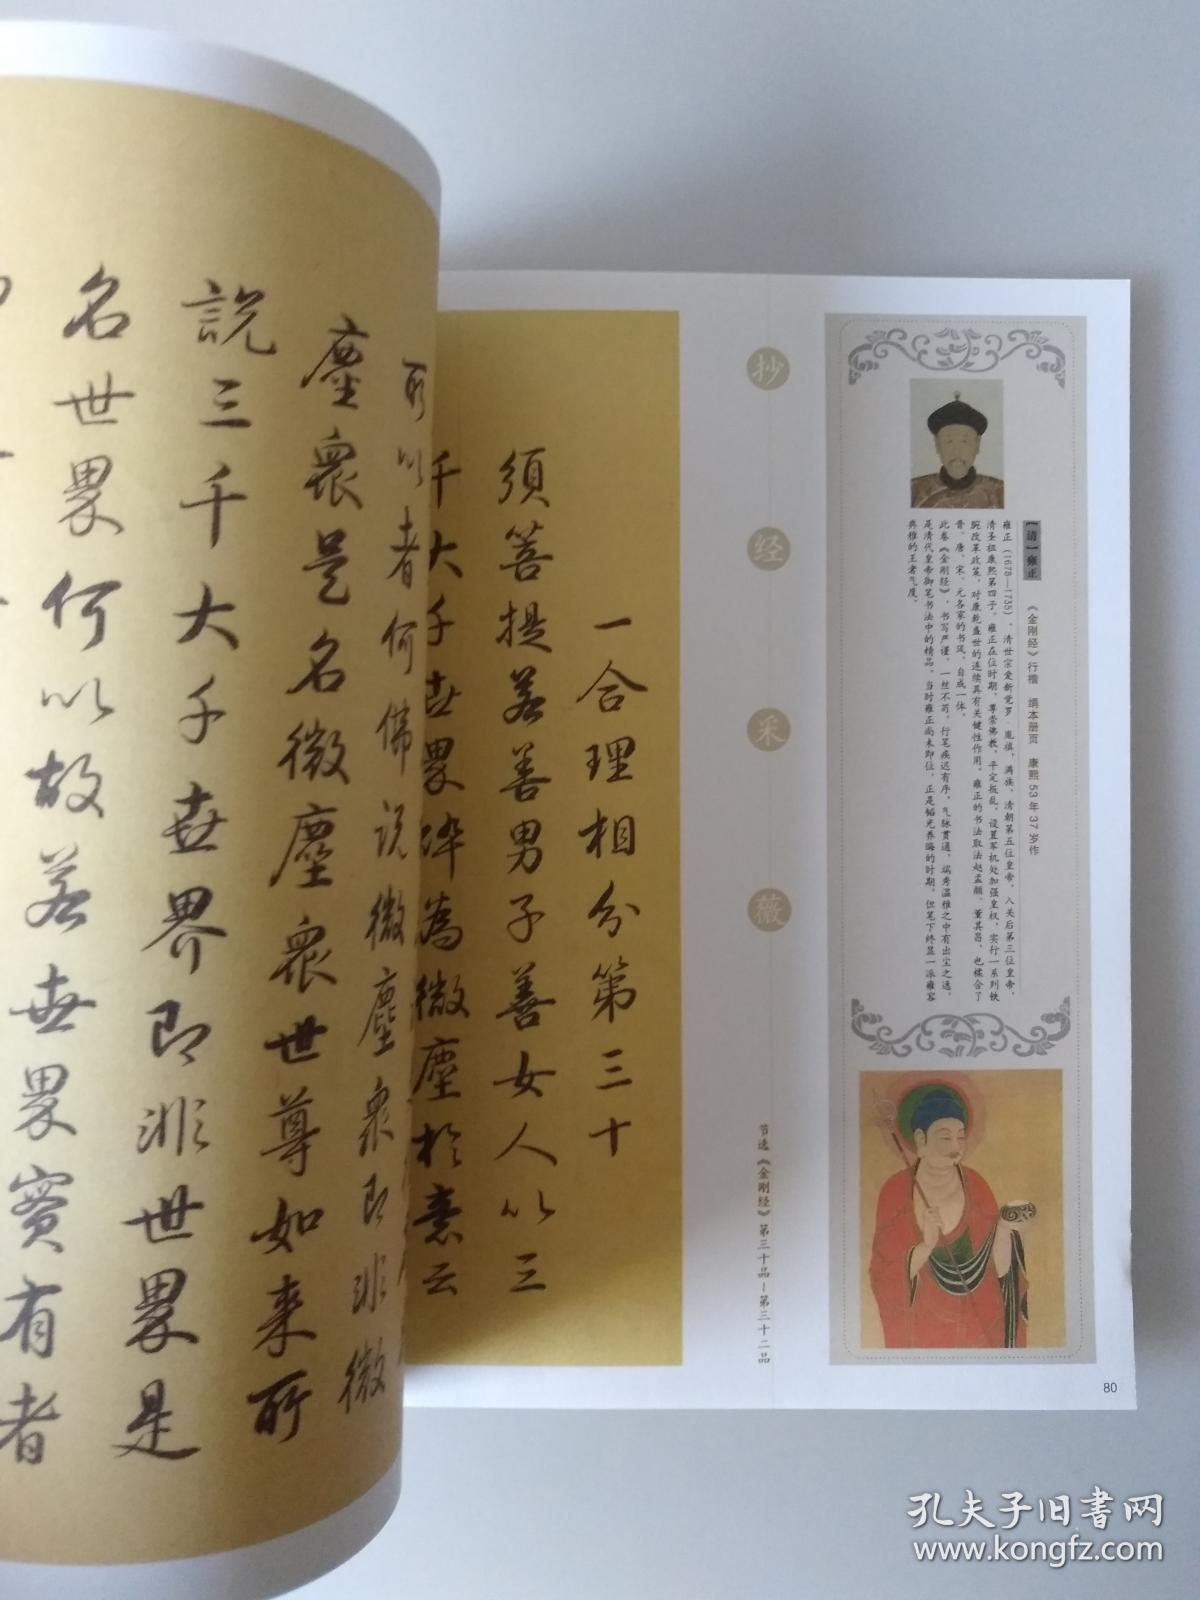 【清】雍正
《金刚经》行楷 绢本册页 康熙53年37岁作
雍正（1678—1735），清世宗爱新觉罗·胤禛，满族，清朝第五位皇帝，入关后第三位皇帝，
清圣祖康熙第四子。雍正在位时期，尊崇佛教，平定叛乱，设置军机处加强皇权，实行一系列铁
腕改革政策，对康乾盛世的连续具有关键性作用。雍正的书法取法赵孟頫、董其昌，也糅合了
晋、唐、宋、元各家的书风，自成一体。
此卷《金刚经》，书写严谨，一丝不苟，行笔疾迟有序，气脉贯通，端秀温雅之中有出尘之逸，
是清代皇帝御笔书法中的精品。当时雍正尚未即位，正是韬光养晦的时期，但笔下终显一派雍容
典雅的王者气度。
抄经采薇
节选《金刚经》第三十品－第三十二品
一合理相分第三十
須菩提若善男子善女人以三
千大千世界碎為微塵於意云
所以者何佛说微塵衆即非微
塵衆是名微塵衆世尊如来所
説三千大千世界即非世界是
名世界何以故若世界實有者
80
孔夫子旧书网
www.kongfz.com